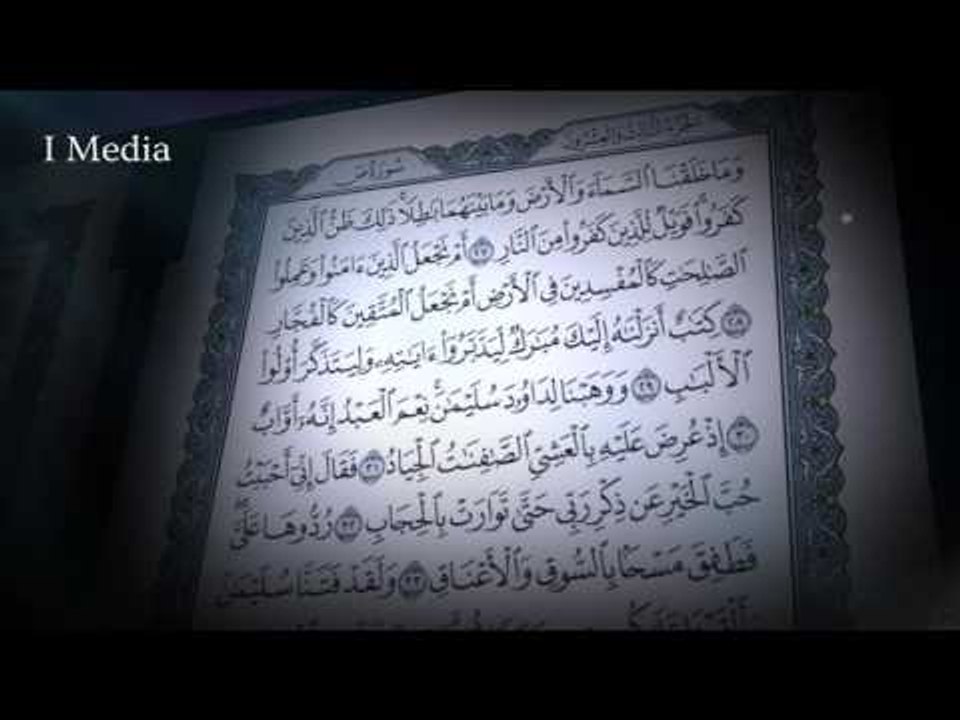 I Media
سُورَةُ صٓ
الجزء الثالث والعشرون
وَمَا خَلَقْنَا ٱلسَّمَآءَ وَٱلْأَرْضَ وَمَا بَيْنَهُمَا بَٰطِلًاۚ ذَٰلِكَ ظَنُّ ٱلَّذِينَ
كَفَرُوا۟ۚ فَوَيْلٌ لِّلَّذِينَ كَفَرُوا۟ مِنَ ٱلنَّارِ ٢٧ أَمْ نَجْعَلُ ٱلَّذِينَ ءَامَنُوا۟ وَعَمِلُوا۟
ٱلصَّٰلِحَٰتِ كَٱلْمُفْسِدِينَ فِى ٱلْأَرْضِ أَمْ نَجْعَلُ ٱلْمُتَّقِينَ كَٱلْفُجَّارِ
٢٨ كِتَٰبٌ أَنزَلْنَٰهُ إِلَيْكَ مُبَٰرَكٌ لِّيَدَّبَّرُوٓا۟ ءَايَٰتِهِۦ وَلِيَتَذَكَّرَ أُو۟لُوا۟
ٱلْأَلْبَٰبِ ٢٩ وَوَهَبْنَا لِدَاوُۥدَ سُلَيْمَٰنَۚ نِعْمَ ٱلْعَبْدُ إِنَّهُۥٓ أَوَّابٌ
٣٠ إِذْ عُرِضَ عَلَيْهِ بِٱلْعَشِىِّ ٱلصَّٰفِنَٰتُ ٱلْجِيَادُ ٣١ فَقَالَ إِنِّىٓ أَحْبَبْتُ
حُبَّ ٱلْخَيْرِ عَن ذِكْرِ رَبِّى حَتَّىٰ تَوَارَتْ بِٱلْحِجَابِ ٣٢ رُدُّوهَا عَلَىَّۖ
فَطَفِقَ مَسْحًۢا بِٱلسُّوقِ وَٱلْأَعْنَاقِ ٣٣ وَلَقَدْ فَتَنَّا سُلَيْمَٰنَ